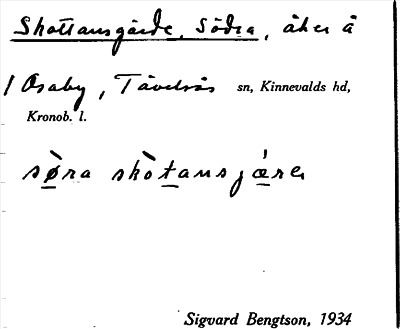 Skottansgärde, Södra, åker å
/ Osaby, Tävelsås sn, Kinnevalds hd,
Kronob. l.
sø̀ra skòtansjæ̀rer
Sigvard Bengtson, 1934